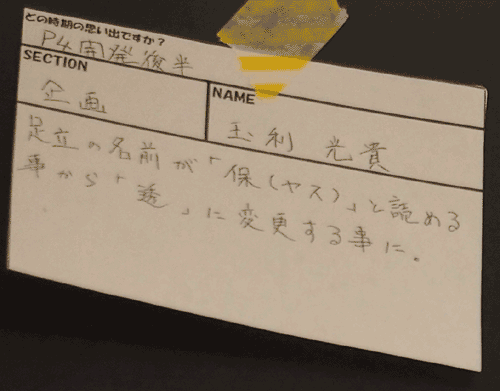 どの時期の思い出ですか？
P4開発後半
SECTION
企画
NAME
玉利 光貴
足立の名前が「保(ヤス)」と読める
事から「透」に変更する事に。